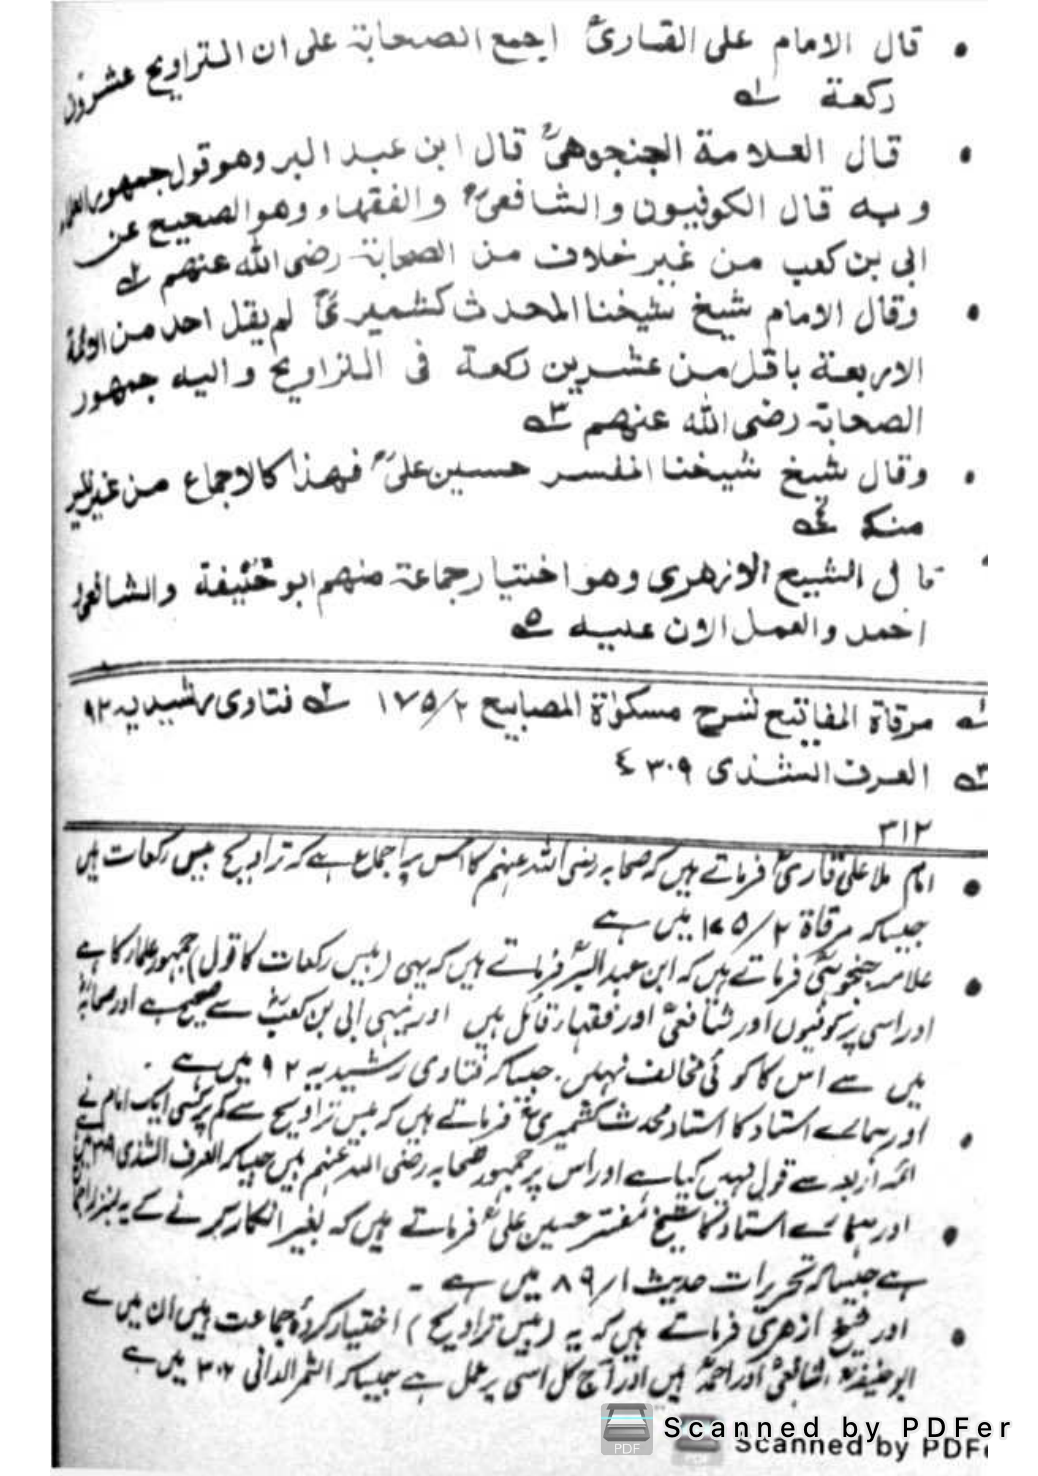 • قال الامام على القارىؒ اجمع الصحابة على ان التراويح عشرون
ركعة لـه١
• قال العلامة الجنجوهىؒ قال ابن عبد البر وهو قول جمهور العلماء
و به قال الكوفيون و الشافعىؒ و الفقهاء وهو الصحيح عن
ابى بن كعب من غير خلاف من الصحابة رضى الله عنهم لـه٢
• وقال الامام شيخ شيخنا المحدث كشميرىؒ لم يقل احد من الائمة
الاربعة باقل من عشرين ركعة فى التراويح و اليه جمهور
الصحابة رضى الله عنهم لـه٣
• وقال شيخ شيخنا المفسر حسين علىؒ فهذا كالاجماع من غير نكير
منكر لـه٤
• قال الشيخ الازهرى وهو اختيار جماعة منهم ابو حنيفة والشافعى
احمد والعمل الان عليه لـه٥
لـه١ مرقاة المفاتيح لشرح مسكواة المصابيح ٢/١٧٥ لـه٢ فتاوى رشيديه ٩٢
لـه٣ العرف الشذى ٣٠٩ ٤
٣١٢
• امام ملا علی قاریؒ فرماتے ہیں کہ صحابہ رضی اللہ عنہم کا اس پر اجماع ہے کہ تراویح بیس رکعات ہیں
جیسا کہ مرقاۃ ٢/١٧٥ میں ہے
• علامہ جنجوہیؒ فرماتے ہیں کہ ابن عبد البرؒ فرماتے ہیں کہ یہی (بیس رکعات کا قول) جمہور علماء کا ہے
اور اسی پر کوفیوں اور شافعیؒ اور فقہاء قائل ہیں اور یہی ابی بن کعبؓ سے صحیح ہے اور صحابہؓ
میں سے اس کا کوئی مخالف نہیں. جیسا کہ فتاوی رشیدیہ ٩٢ میں ہے .
• اور ہمارے استاد کا استاد محدث کشمیریؒ فرماتے ہیں کہ بیس تراویح سے کم پر کسی ایک امام نے
ائمہ اربعہ سے قول نہیں کیا ہے اور اس پر جمہور صحابہ رضی اللہ عنہم ہیں جیسا کہ العرف الشذی ٣٠٩ میں ہے
• اور ہمارے استاد کا شیخ مفسر حسین علیؒ فرماتے ہیں کہ بغیر انکار کرنے کے یہ بمنزلہ اجماع
ہے جیسا کہ تحریرات حدیث ١/٨٩ میں ہے -
• اور شیخ ازھریؒ فرماتے ہیں کہ یہ (بیس تراویح) اختیار کردہ جماعت ہیں ان میں سے
ابو حنیفہؒ الشافعیؒ اور احمدؒ ہیں اور آج کل اسی پر عمل ہے جیسا کہ الثمر الدانی ٣٠٧ میں ہے
Scanned by PDFer
Scanned by PDFe